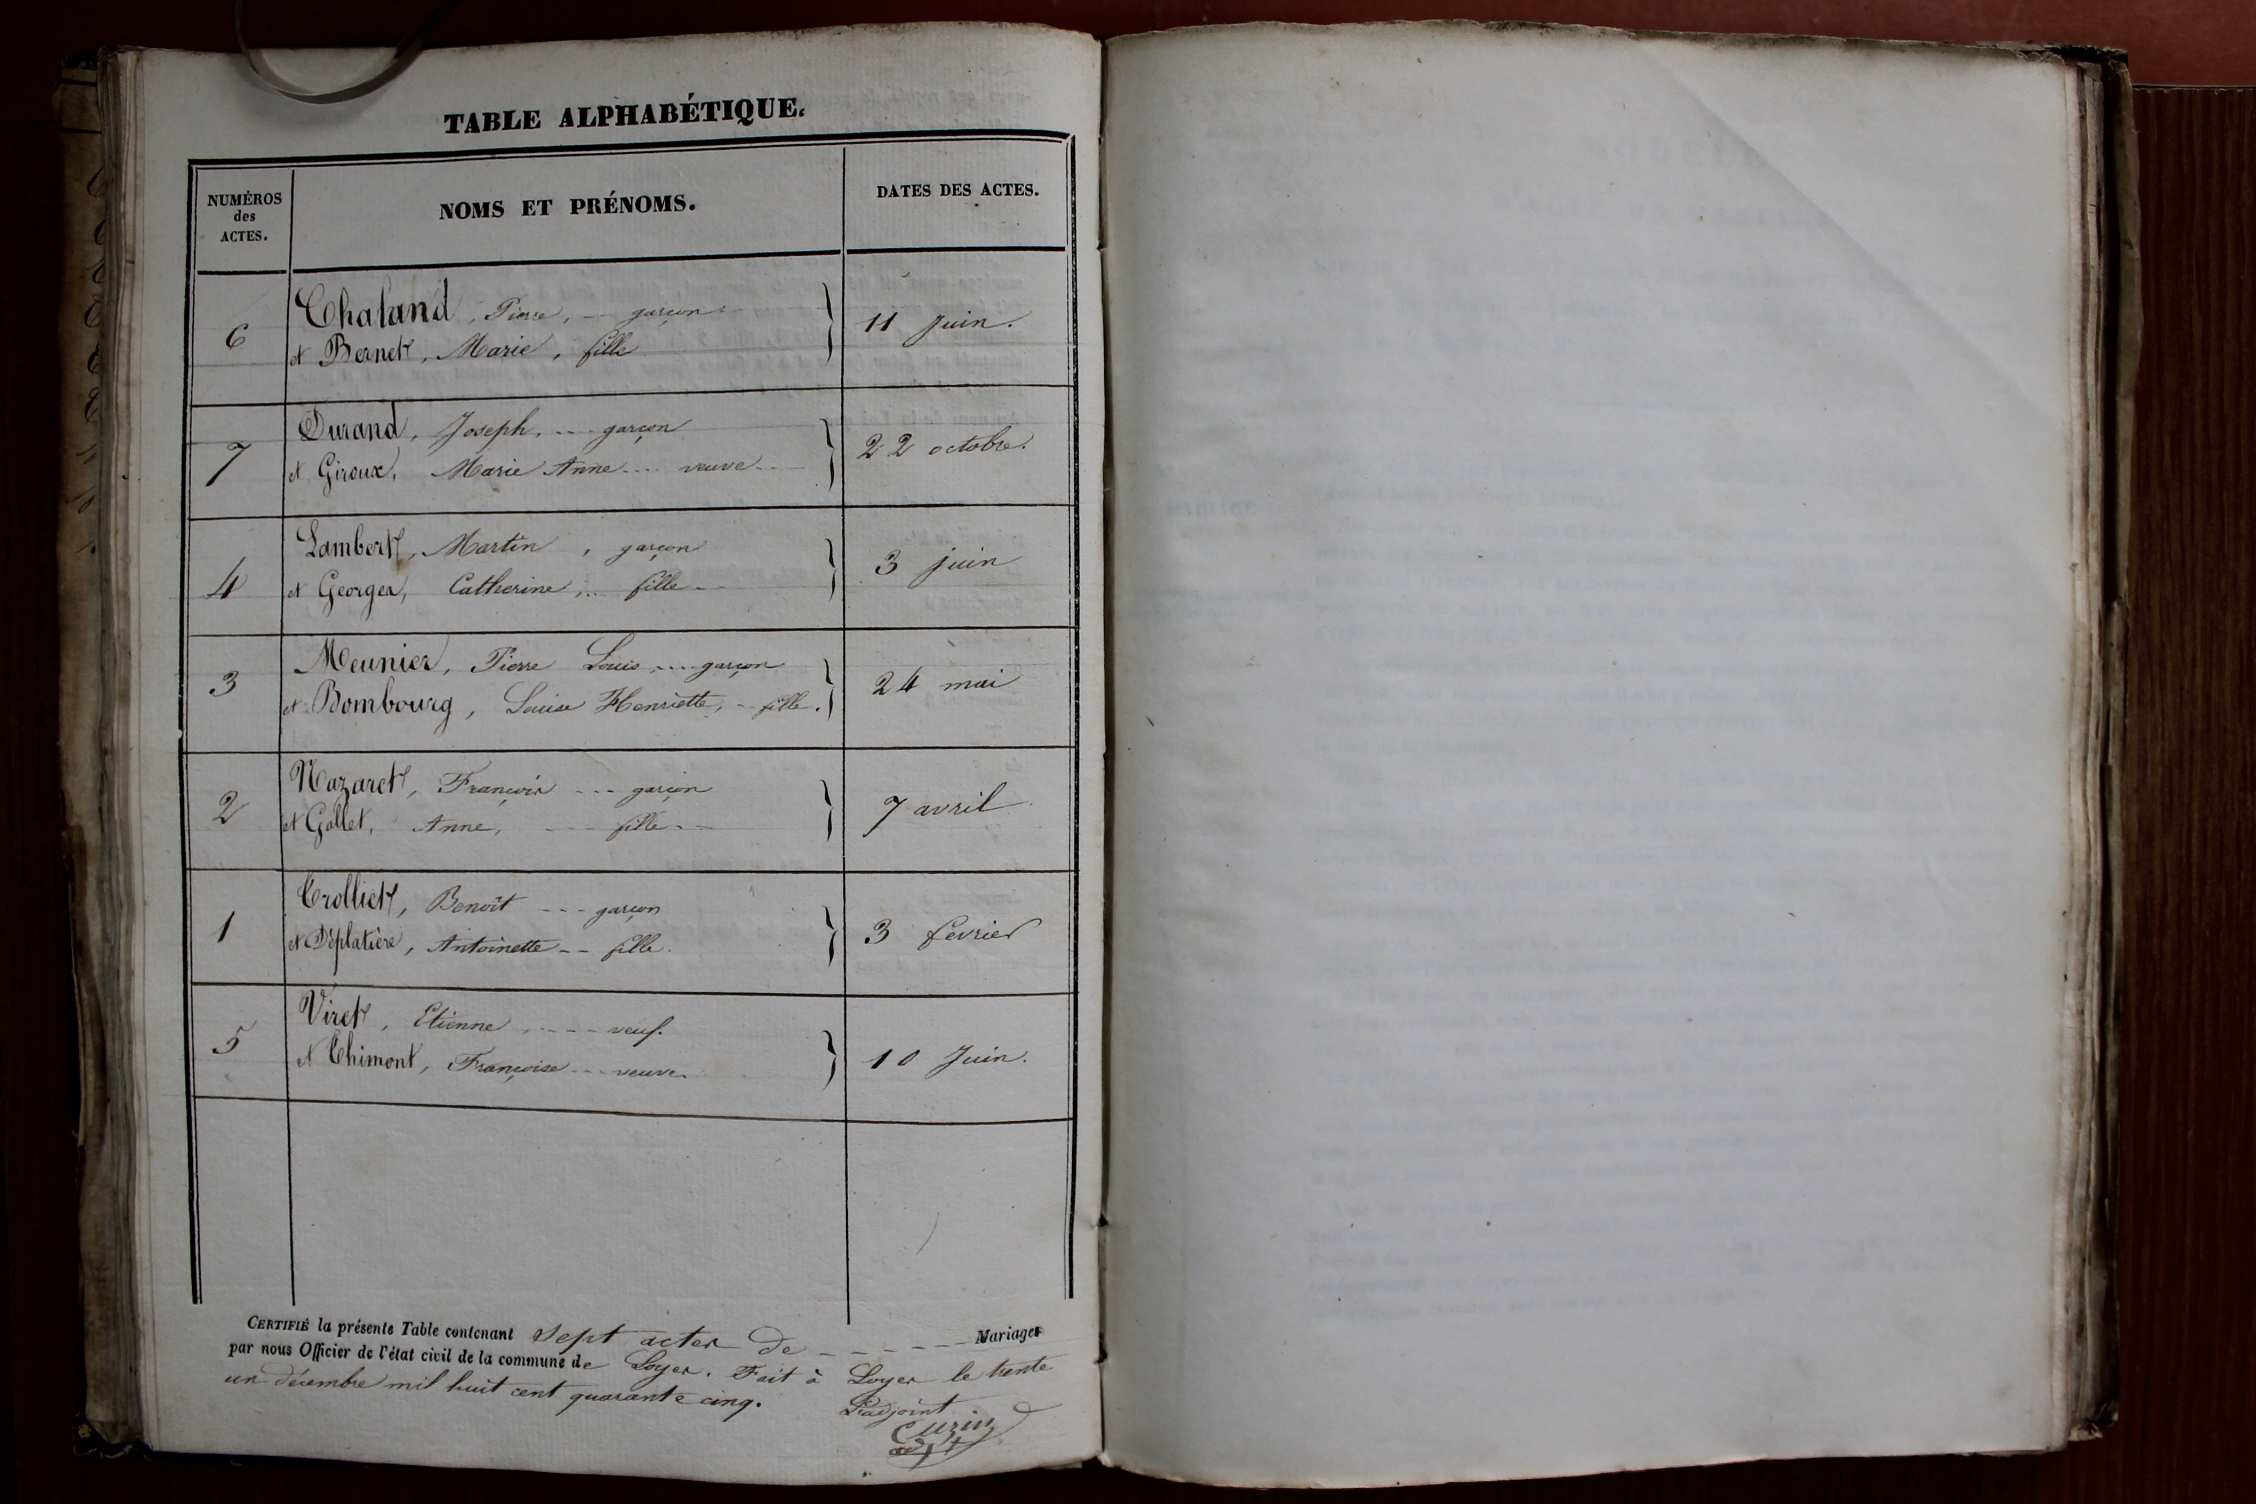 TABLE ALPHABÉTIQUE.
NUMÉROS
des
ACTES.
NOMS ET PRÉNOMS.
DATES DES ACTES.
6
Chaland, Pierre, -- garçon
et Bernet, Marie, fille
11 Juin.
7
Durand, Joseph, --- garçon
et Giroux, Marie Anne ---- veuve ---
22 octobre.
4
Lambert, Martin, garçon
et Georges, Catherine, -- fille --
3 juin
3
Meunier, Pierre Louis, ---- garçon
et Bombourg, Louise Henriette, - fille.
24 mai
2
Nazaret, François --- garçon
et Gollet, Anne, --- fille --
7 avril
1
Trolliet, Benoît --- garçon
et Déplatière, Antoinette -- fille.
3 fevrier
5
Viret, Etienne, ---- veuf.
et Thimont, Françoise --- veuve.
10 Juin.
CERTIFIÉ la présente Table contenant sept actes de ------ Mariages
par nous Officier de l'état civil de la commune de Loyes. Fait à Loyes le trente
un décembre mil huit cent quarante cinq.
L'adjoint
Cuzin
adjt